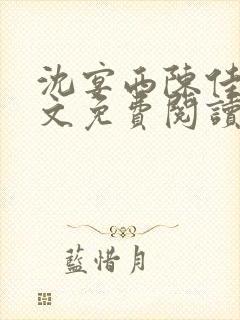 沈宴西陳佳
文免費閱讀
藍惜月